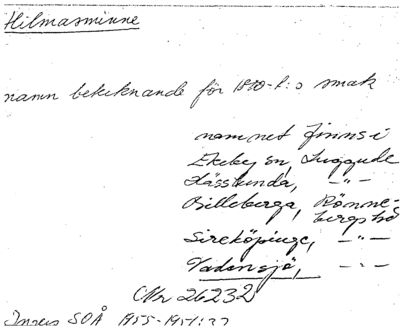 Hilmasminne
namn betecknande för 1800-t:s smak
namnet finns i
Ekeby sn, Luggude
Kässlunda, -"-
Billeberga, Rönne-
bergs hd
Sireköpinge, -"-
Vadensjö, -"-
Nr 26232
SOÅ 1955-1957:37